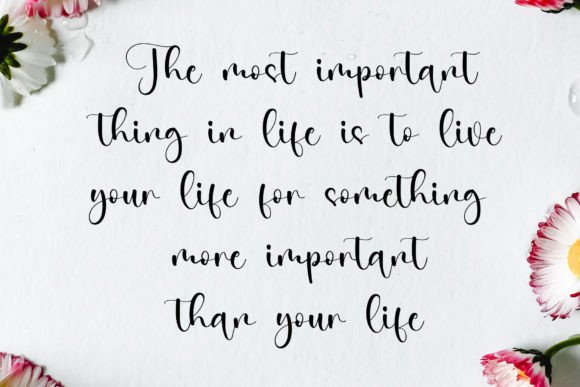 The most important
thing in life is to live
your life for something
more important
than your life